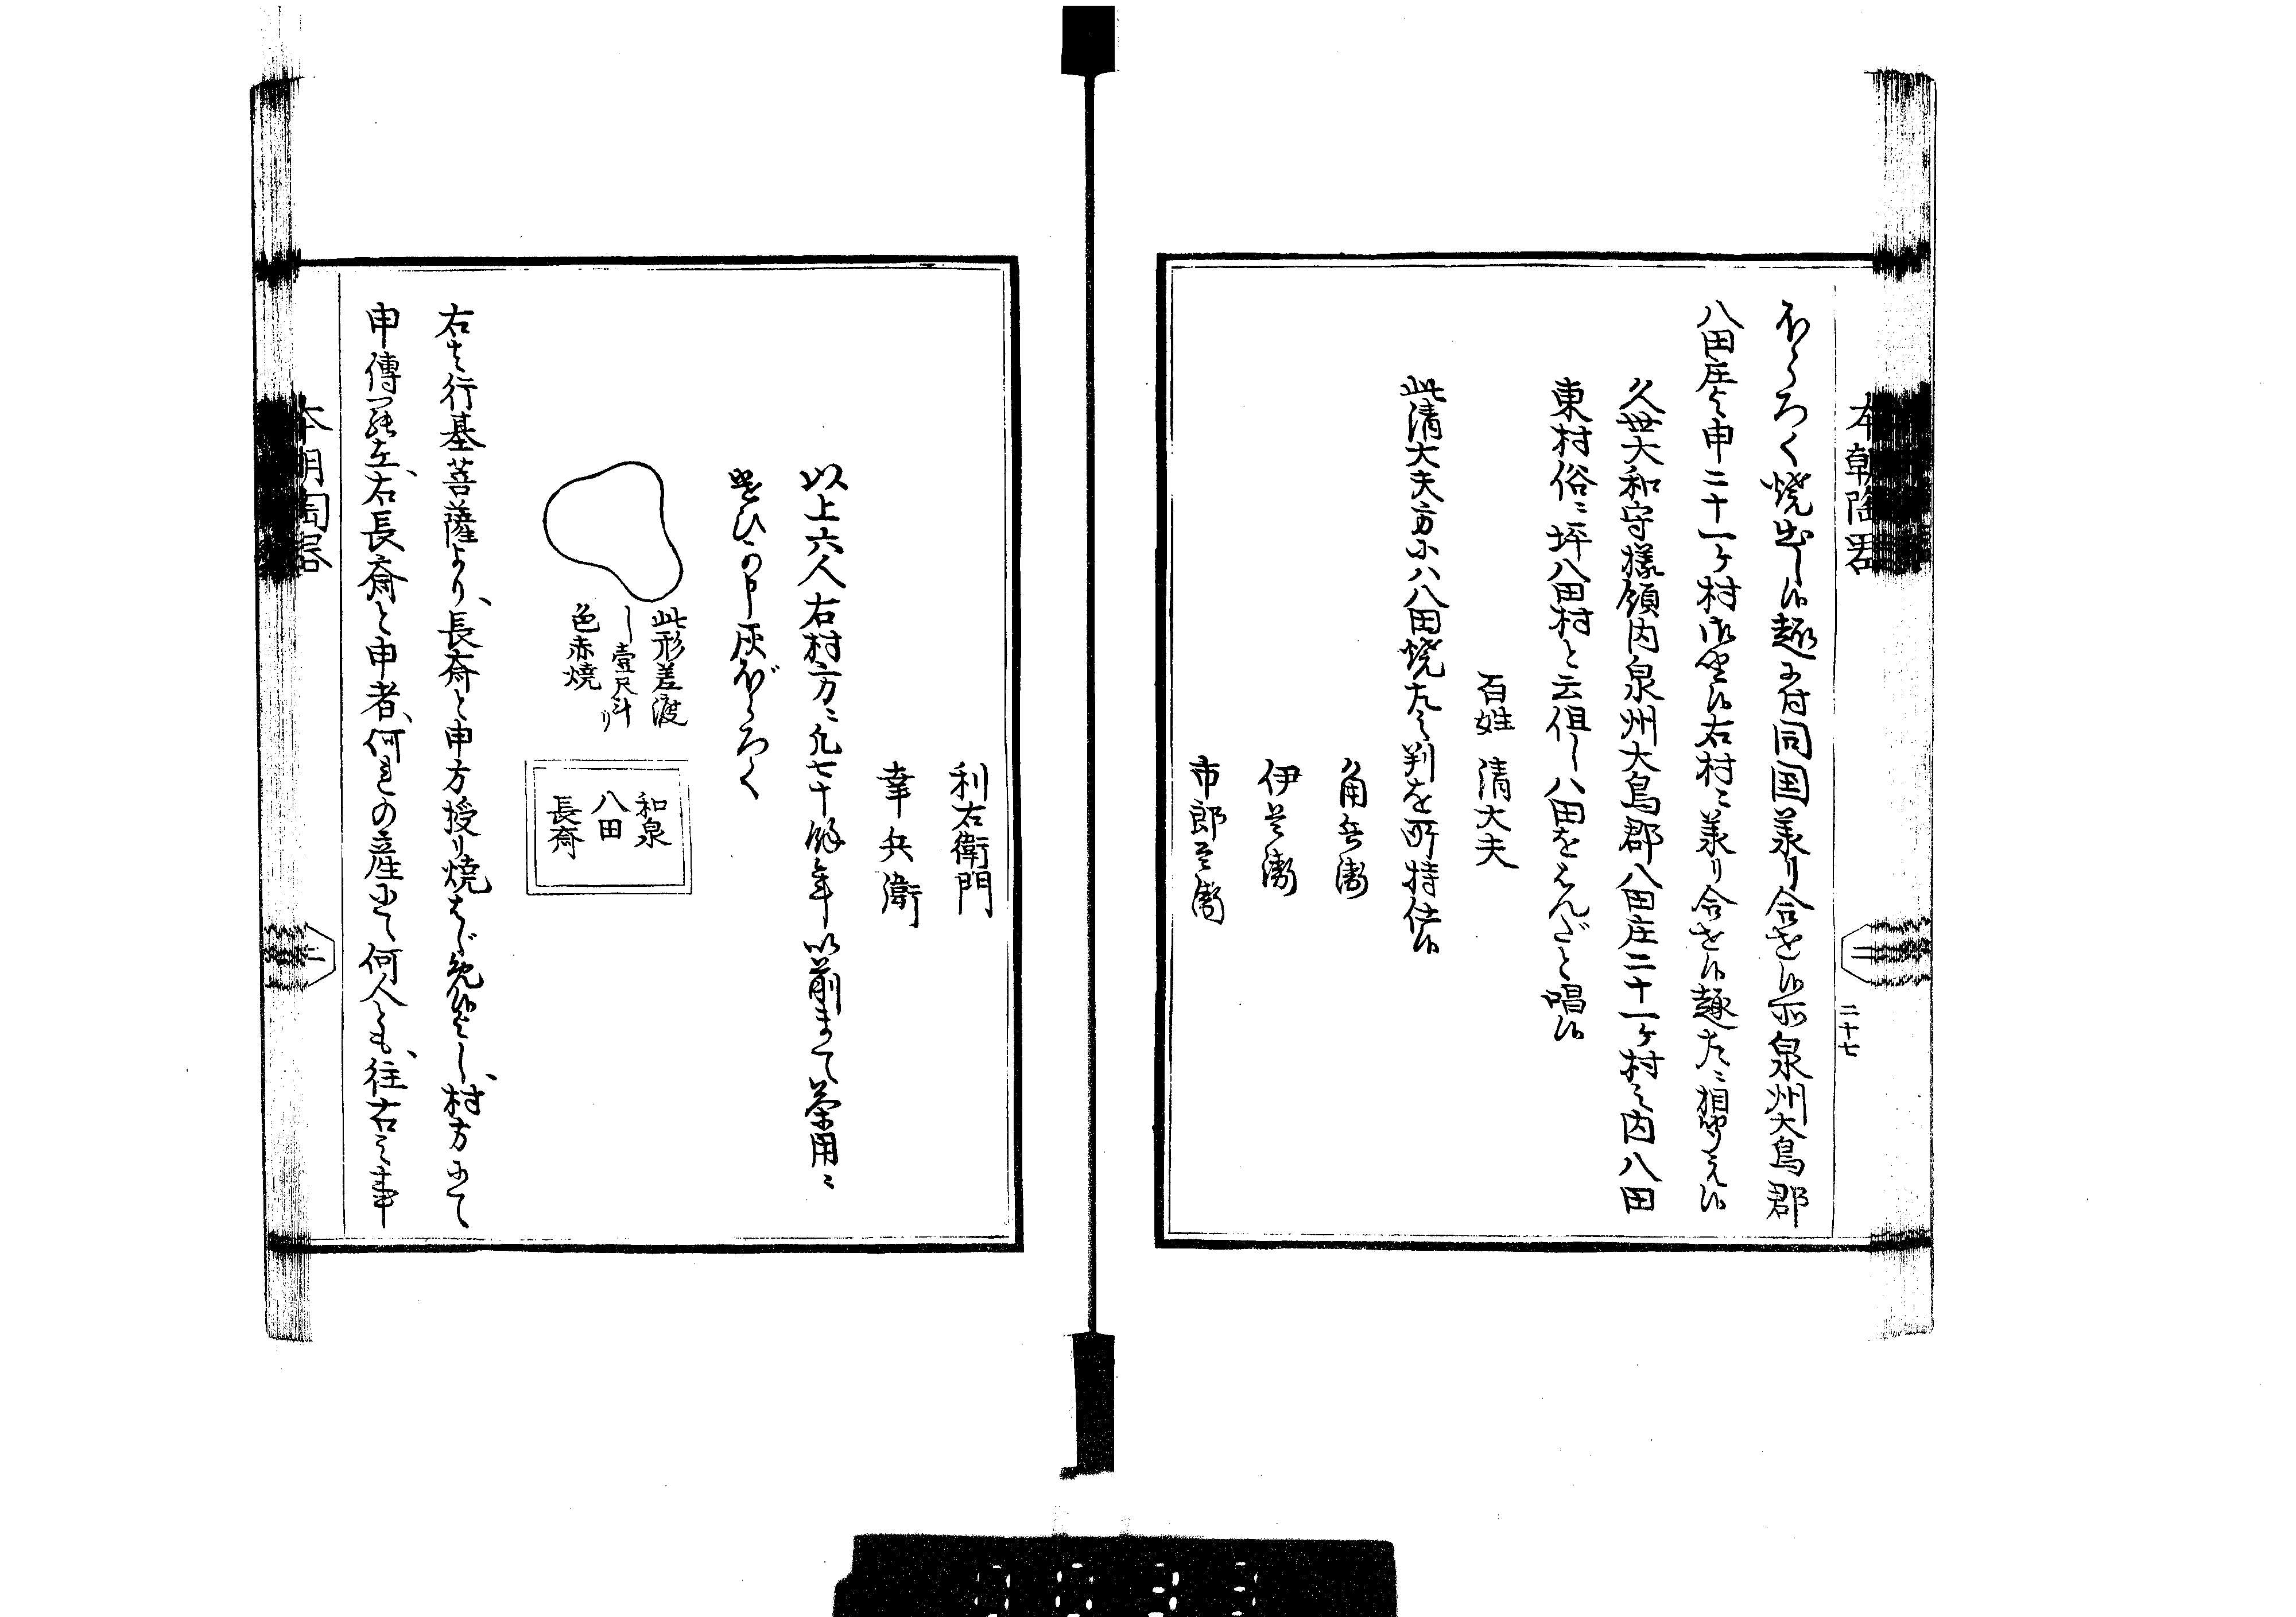 本朝陶器
二十七
ほうろく焼出し候趣ニ付同国義り合せ候所泉州大鳥郡
八田庄と申二十一ヶ村御座候右村ニ義り合せ候趣左ニ相印之候
久世大和守様領内泉州大鳥郡八田庄二十一ヶ村之内八田
東村俗ニ坪八田村と云但し八田をはんだと唱候
百姓 清大夫
此清大夫方ニハ八田焼左之判を所持仕候
角兵衛
伊兵衛
市郎兵衛
利右衛門
幸兵衛
以上六人右村方ニ凡七十餘年以前まて茶用ニ
灰ほうろく
此形差渡
し壹尺斗り
色赤焼
和泉
八田
長斎
右者行基菩薩より、長斎と申方授り焼はじめ候よし、村方にて
申傳、右長斎と申者、何れの産にて何人とも、往古之事
本朝陶器